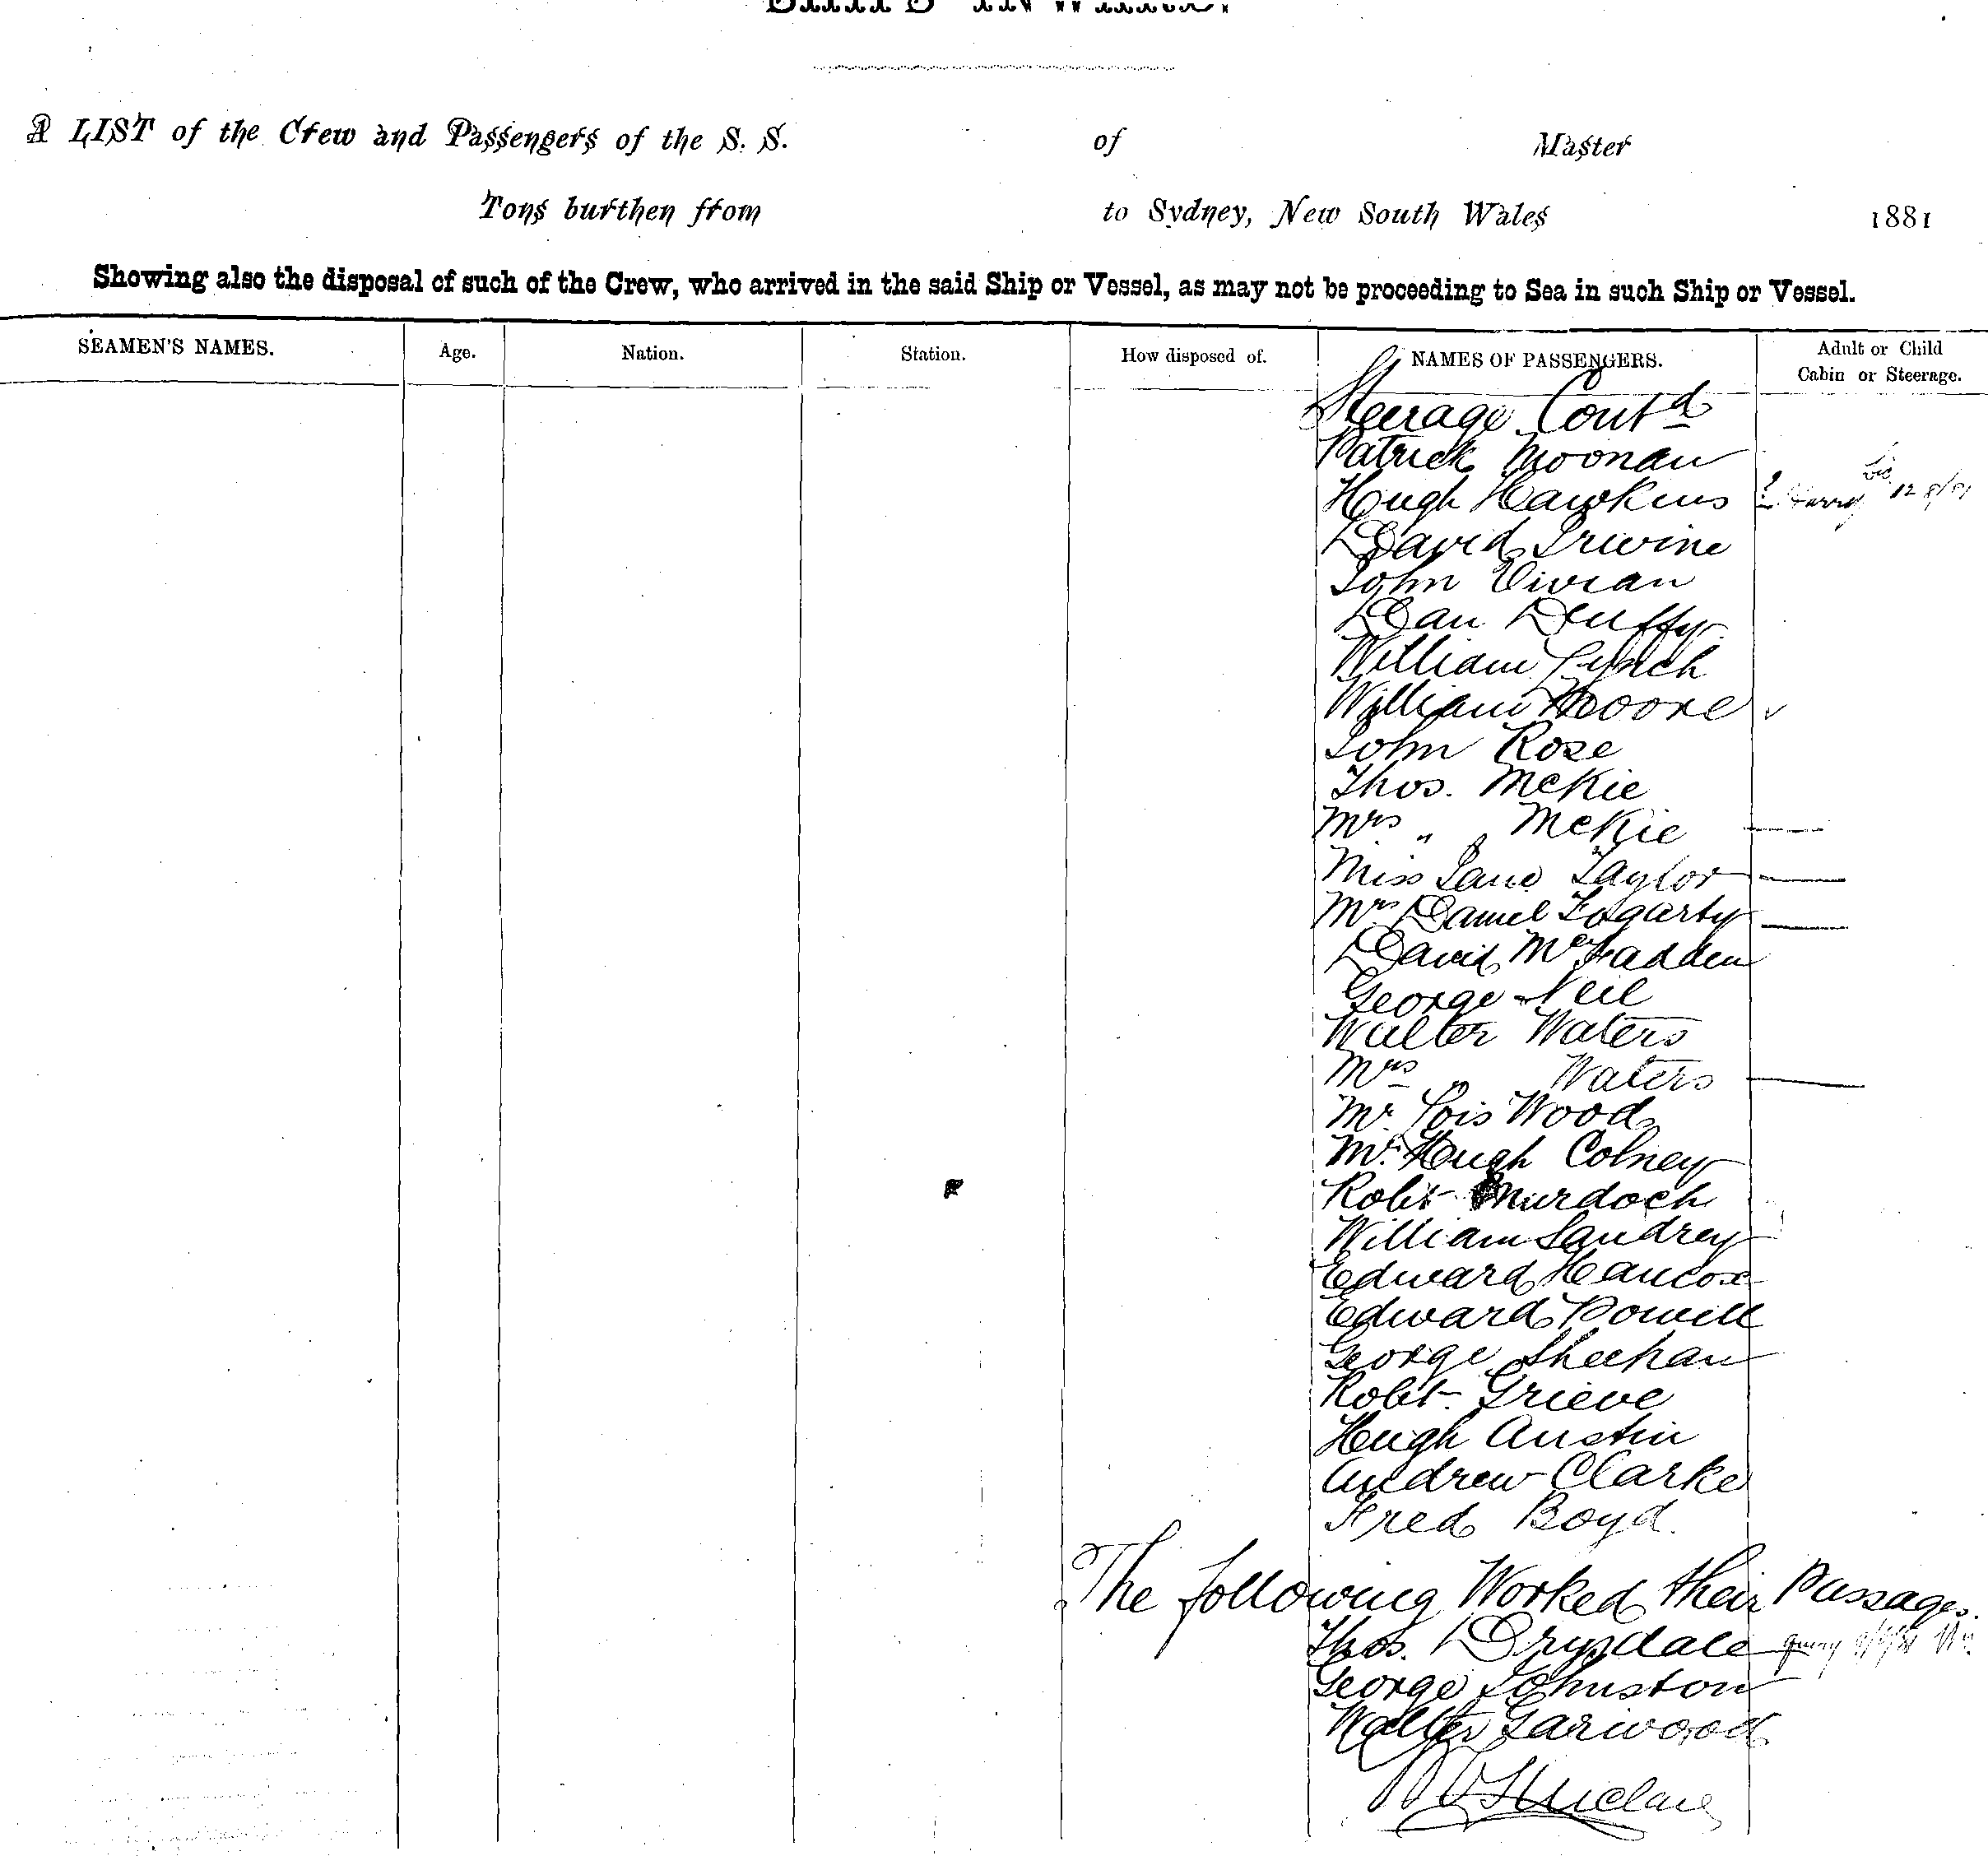 A LIST of the Crew and Passengers of the S. S. of Master
Tons burthen from to Sydney, New South Wales 1881
Showing also the disposal of such of the Crew, who arrived in the said Ship or Vessel, as may not be proceeding to Sea in such Ship or Vessel.
SEAMEN'S NAMES. Age. Nation. Station. How disposed of. NAMES OF PASSENGERS. Adult or Child Cabin or Steerage.
Steerage Contd
Patrick Moonan
Hugh Hawkins ? Harry 12 8/81
David Irwine
John Vivian
Dan Duffy
William Lynch
William Moore
John Rose
Thos. McKie
Mrs " McKie
Miss Jane Taylor
Mrs Daniel Fogarty
David McFadden
George Neil
Walter Waters
Mrs " Waters
Mr. Lois Wood
Mr. Hugh Colney
Robt Murdoch
William Landrey
Edward Hancox
Edward Powell
George Sheehan
Robt. Grieve
Hugh Austin
Andrew Clarke
Fred Boyd.
The following Worked their Passages.
Thos. Drysdale
George Johnston
Walter Garwood